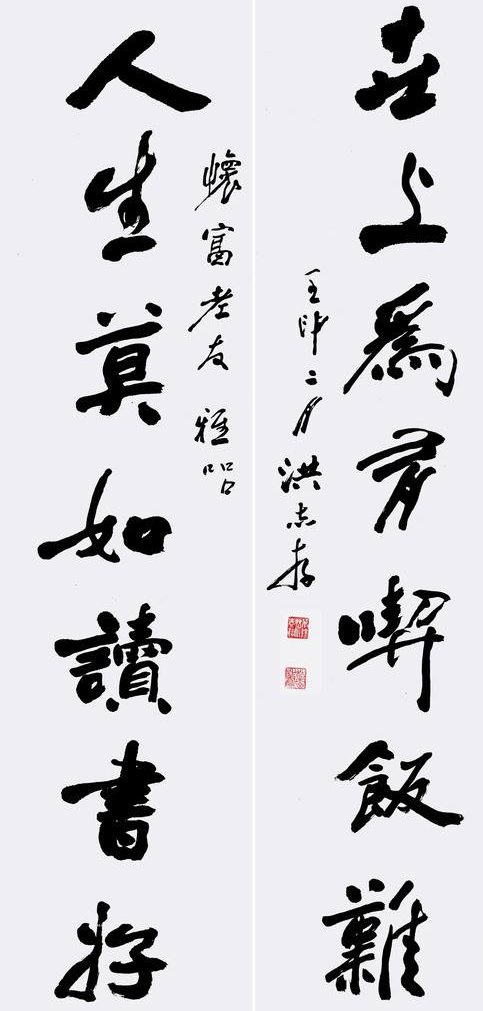 人生莫如讀書好
懷富老友雅
世上爲有喫飯難
壬申二月洪志存